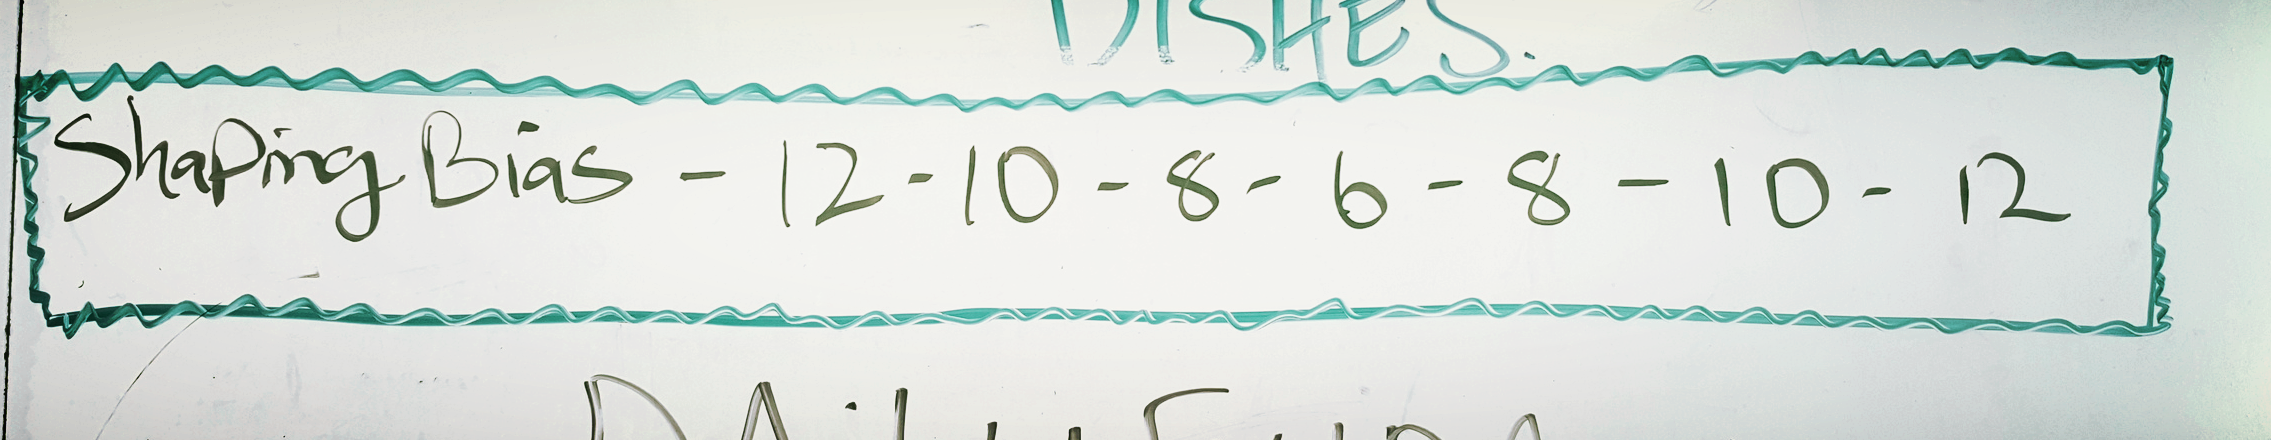 DISHES.
Shaping Bias - 12 - 10 - 8 - 6 - 8 - 10 - 12